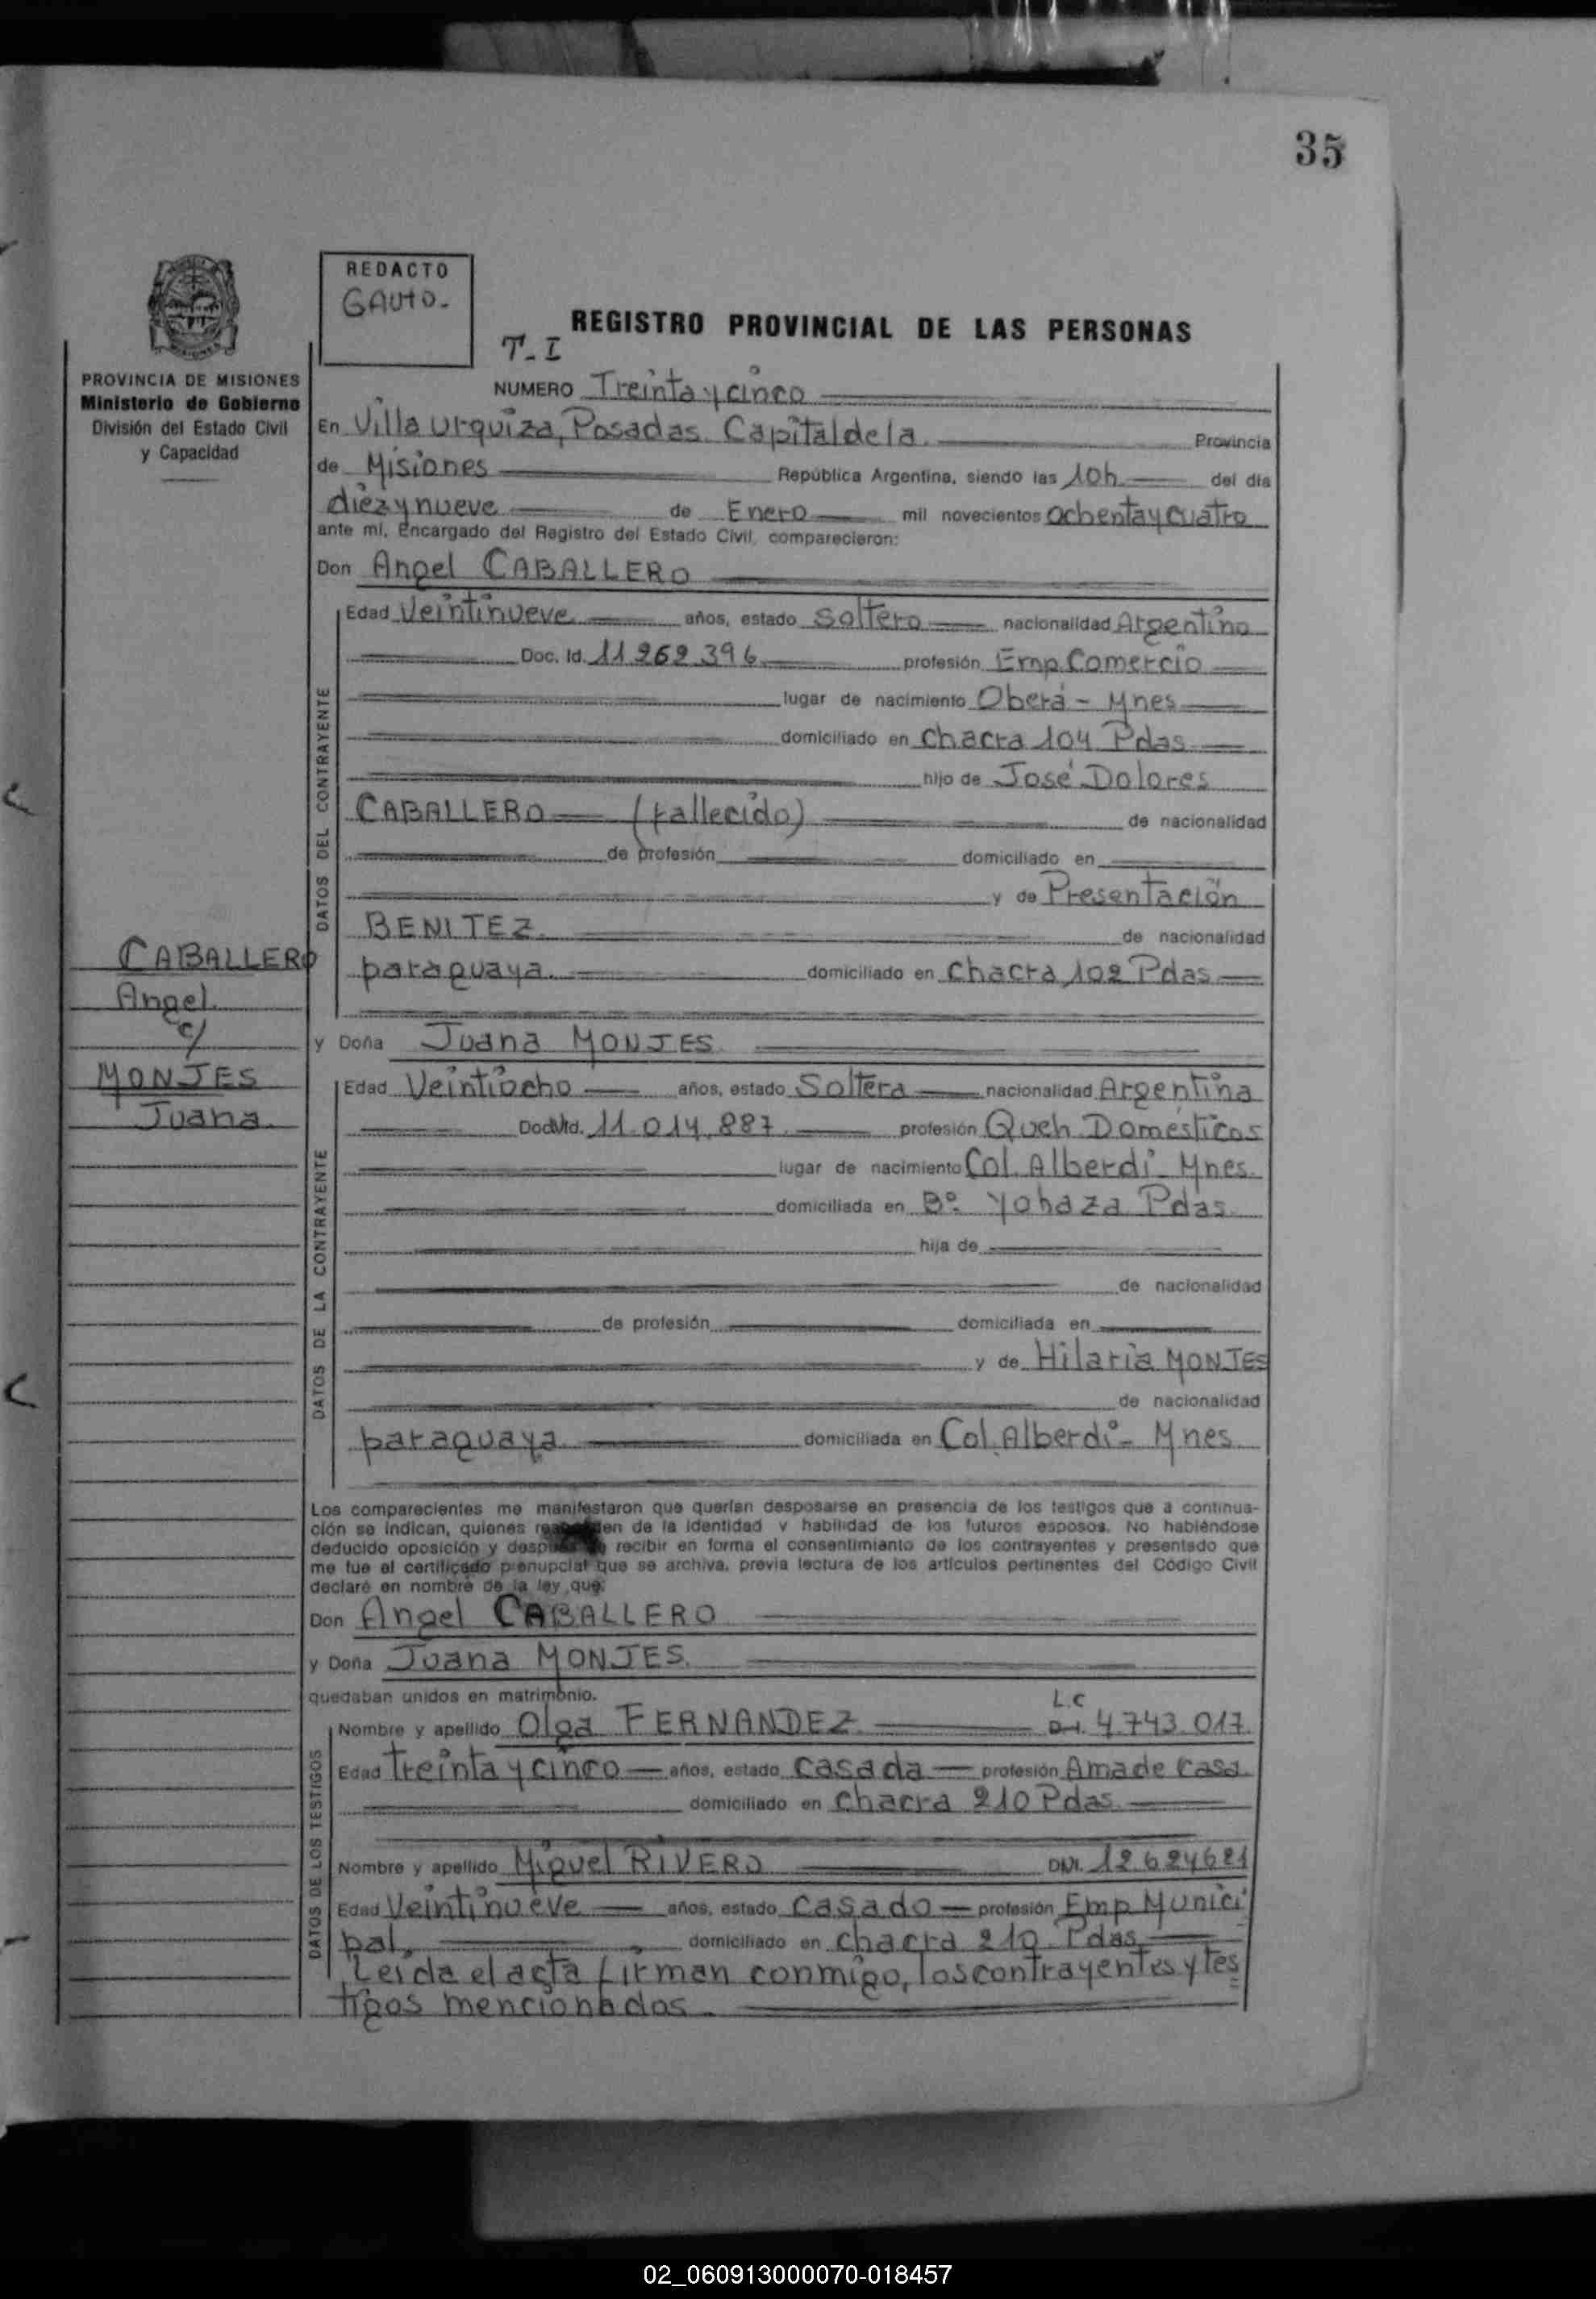 35
REDACTO
GAUTO.-
REGISTRO PROVINCIAL DE LAS PERSONAS
T-I
PROVINCIA DE MISIONES
Ministerio de Gobierno
División del Estado Civil
y Capacidad
NUMERO Treinta y cinco
En Villa Urquiza, Posadas. Capital de la Provincia
de Misiones República Argentina, siendo las 10h del día
diez y nueve de Enero mil novecientos ochenta y cuatro
ante mí, Encargado del Registro del Estado Civil, comparecieron:
Don Angel CABALLERO
DATOS DEL CONTRAYENTE
Edad Veintinueve años, estado Soltero nacionalidad Argentino
Doc. Id. 11.969.396 profesión Emp. Comercio
lugar de nacimiento Oberá - Mnes
domiciliado en Chacra 104 Pdas
hijo de José Dolores
CABALLERO (fallecido) de nacionalidad
de profesión domiciliado en
y de Presentación
BENITEZ de nacionalidad
paraguaya domiciliado en Chacra 102 Pdas
CABALLERO
Angel
c/
MONJES
Juana
y Doña Juana MONJES
DATOS DE LA CONTRAYENTE
Edad Veintiocho años, estado Soltera nacionalidad Argentina
Doc. Id. 11.014.887 profesión Queh. Domésticos
lugar de nacimiento Col. Alberdi - Mnes.
domiciliada en Bº Yohaza Pdas.
hija de
de nacionalidad
de profesión domiciliada en
y de Hilaria MONJES
de nacionalidad
paraguaya domiciliada en Col. Alberdi - Mnes
Los comparecientes me manifestaron que querían desposarse en presencia de los testigos que a continua-
ción se indican, quienes responden de la identidad y habilidad de los futuros esposos. No habiéndose
deducido oposición y después de recibir en forma el consentimiento de los contrayentes y presentado que
me fue el certificado prenupcial que se archiva, previa lectura de los artículos pertinentes del Código Civil
declaré en nombre de la ley que:
Don Angel CABALLERO
y Doña Juana MONJES
quedaban unidos en matrimonio.
DATOS DE LOS TESTIGOS
L.C
Nombre y apellido Olga FERNANDEZ 4.743.017
Edad treinta y cinco años, estado Casada profesión Ama de casa
domiciliado en Chacra 210 Pdas
Nombre y apellido Miguel RIVERO DNI. 12.624621
Edad Veintinueve años, estado Casado profesión Emp Munici
pal, domiciliado en Chacra 210 Pdas
Leída el acta firman conmigo, los contrayentes y tes
tigos mencionados
02_060913000070-018457